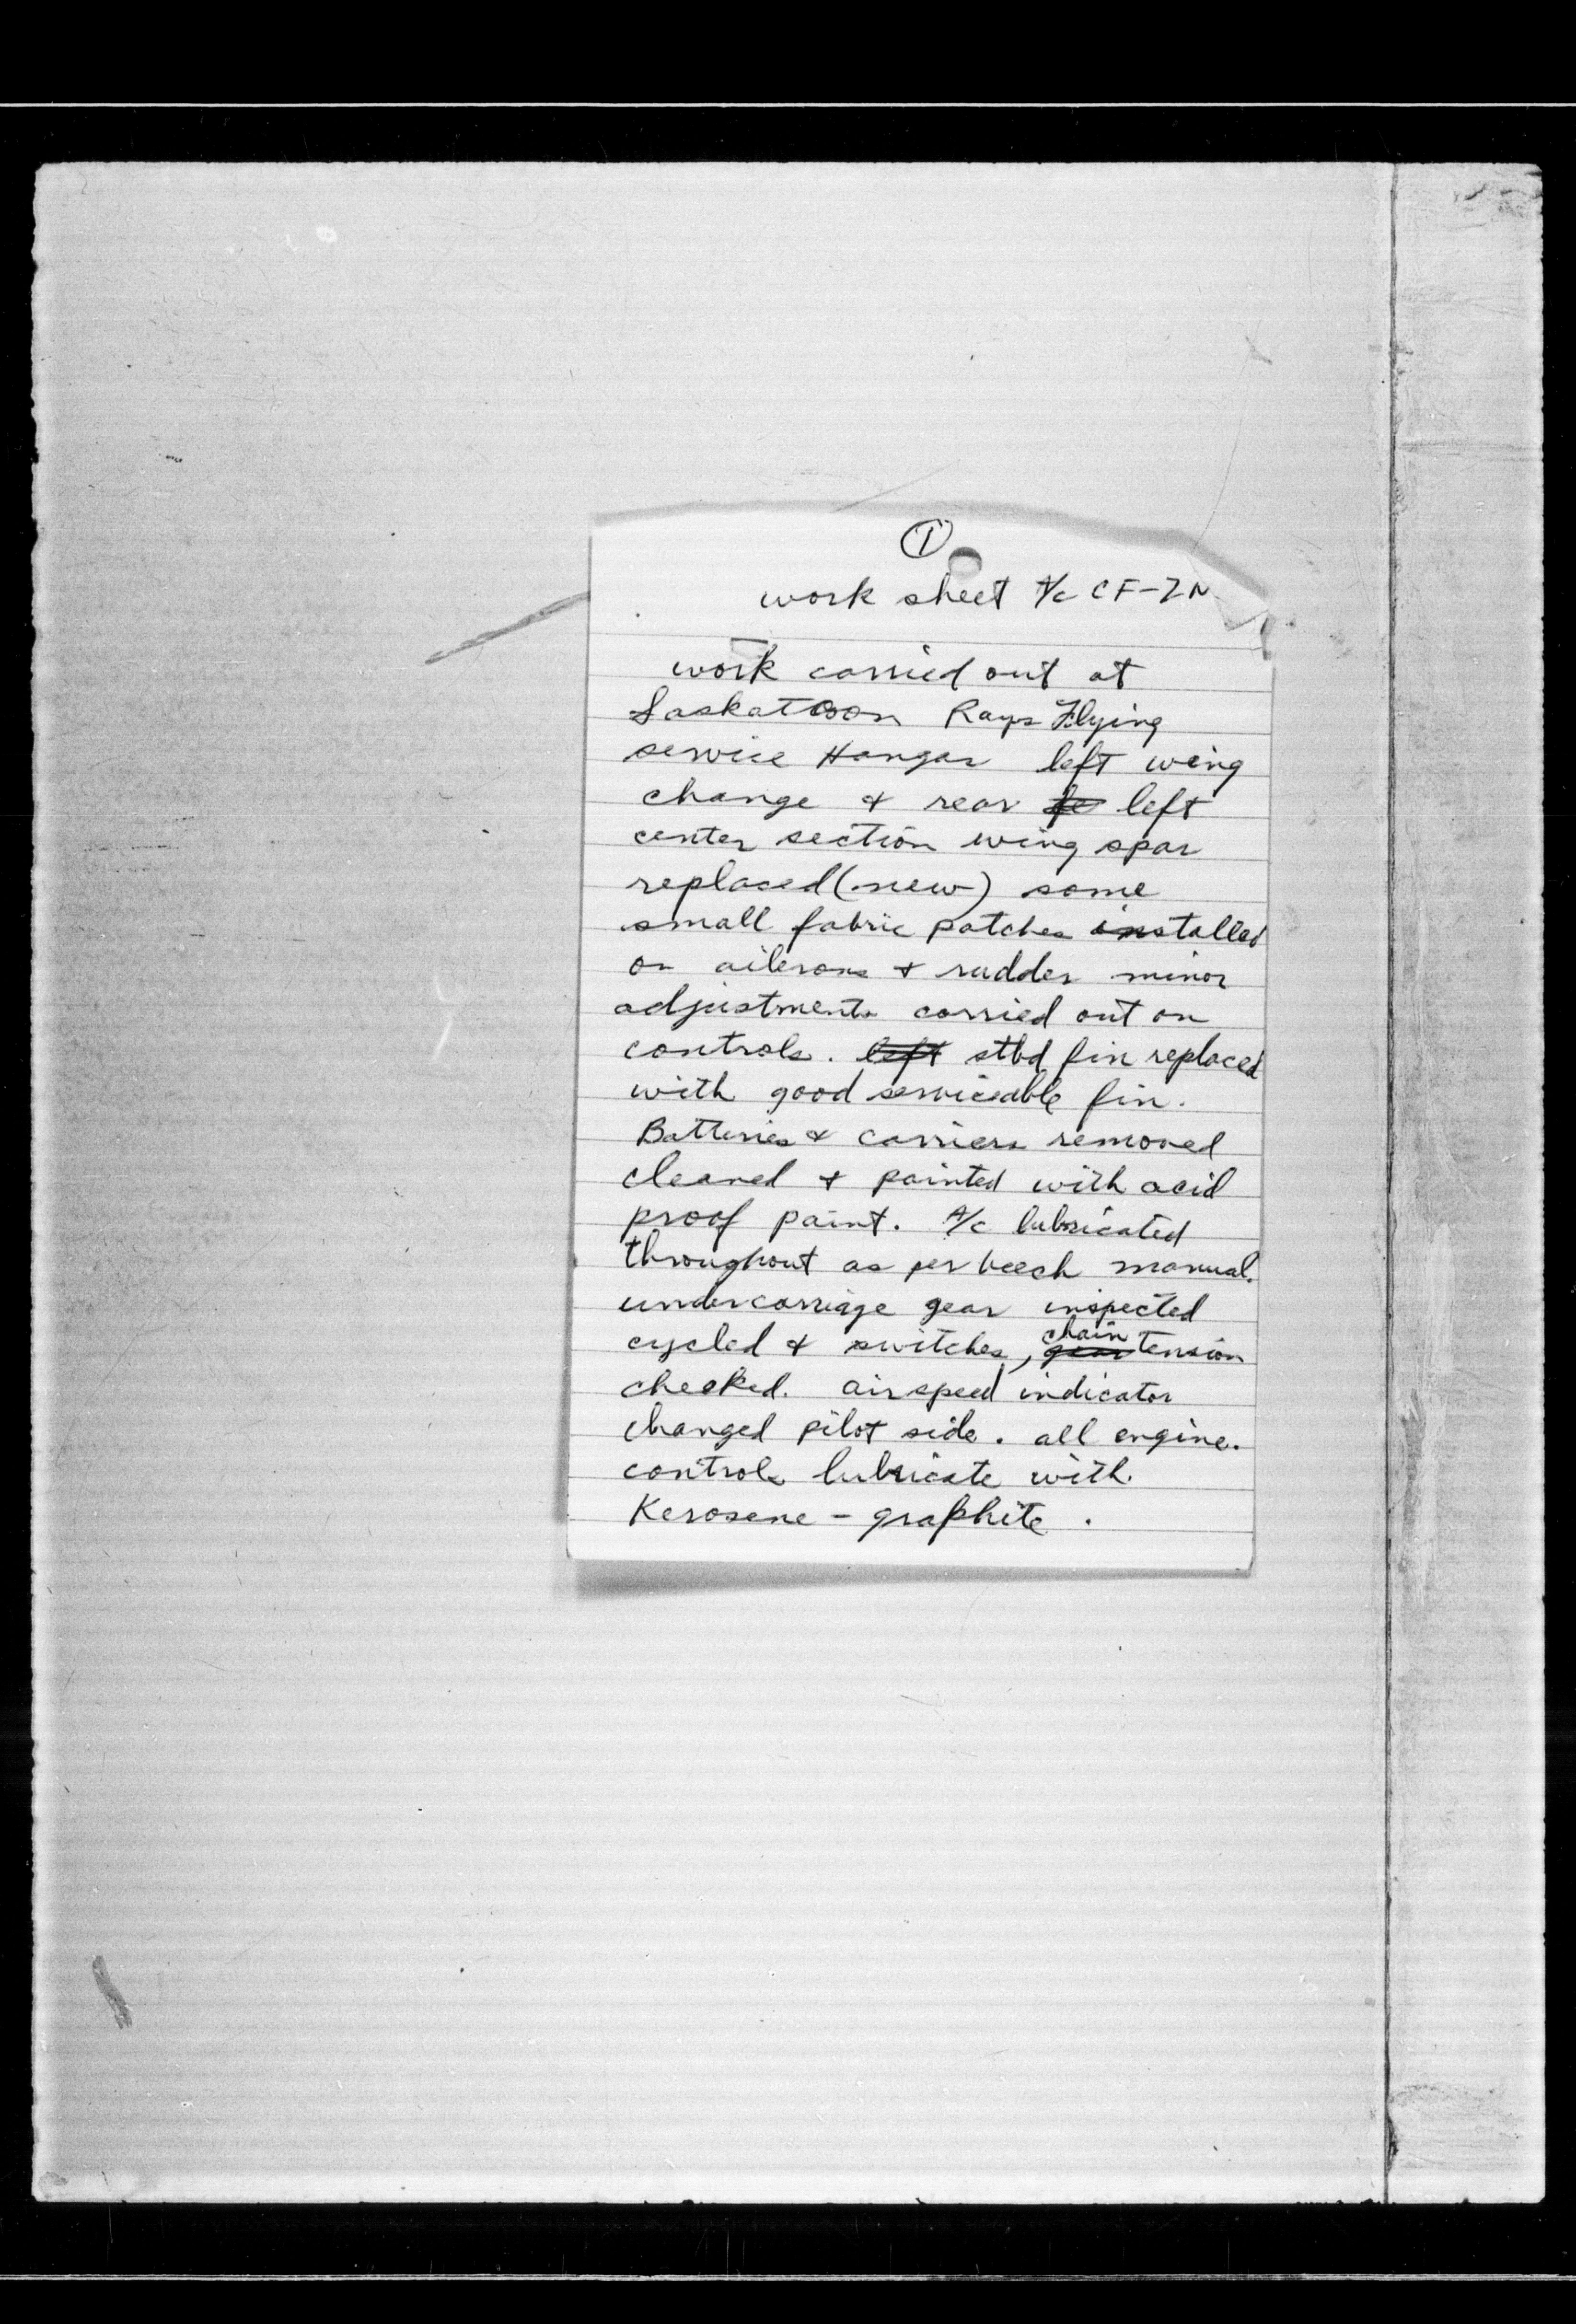 1
work sheet A/c CF-ZN
work carried out at
Saskatoon Rays Flying
service Hangar left wing
change & rear le left
center section wing spar
replaced (new) some
small fabric patches installed
on ailerons & rudder minor
adjustments carried out on
controls. left stbd fin replaced
with good serviceable fin.
Batteries & carriers removed
cleaned & painted with acid
proof paint. A/c lubricated
throughout as per beech manual.
undercarriage gear inspected
chain
cycled & switches, gear tension
checked. airspeed indicator
changed pilot side. all engine.
controls lubricate with.
Kerosene - graphite .